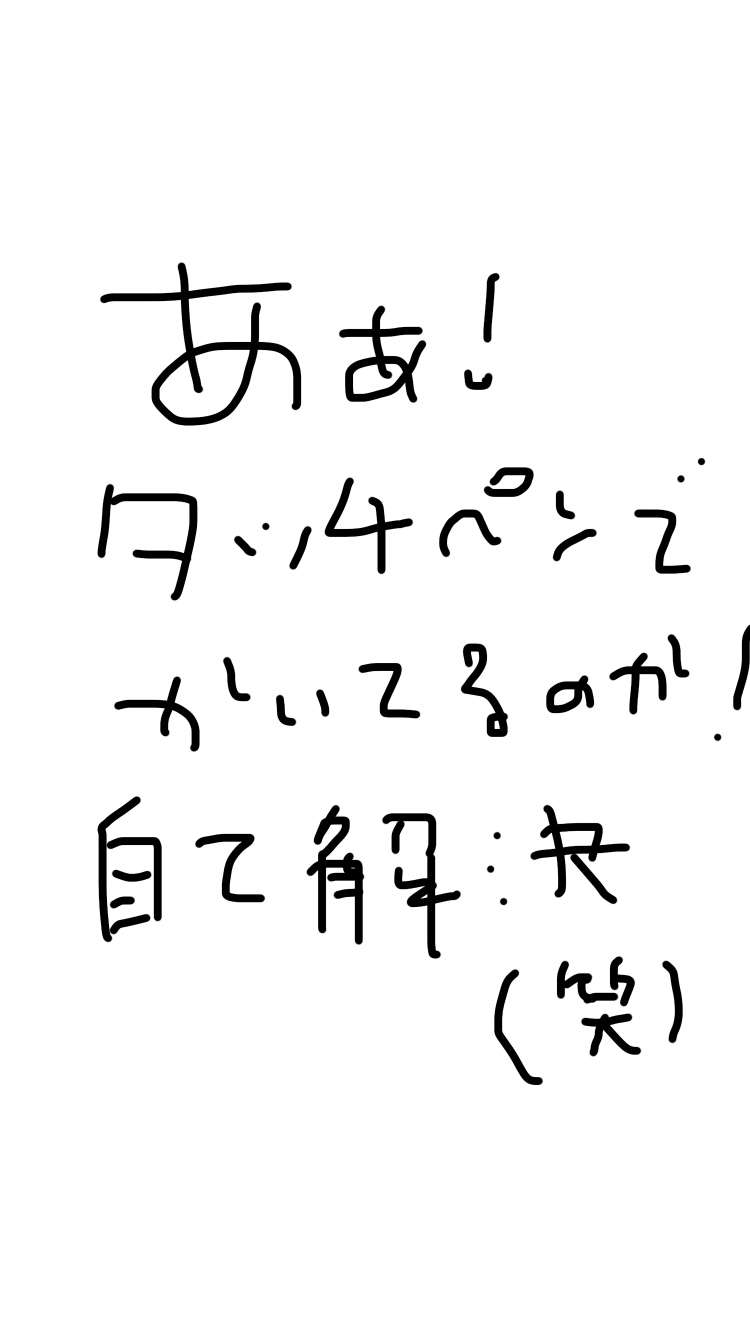 あぁ!
タッチペンで
かいてるのか!
自て解決
(笑)